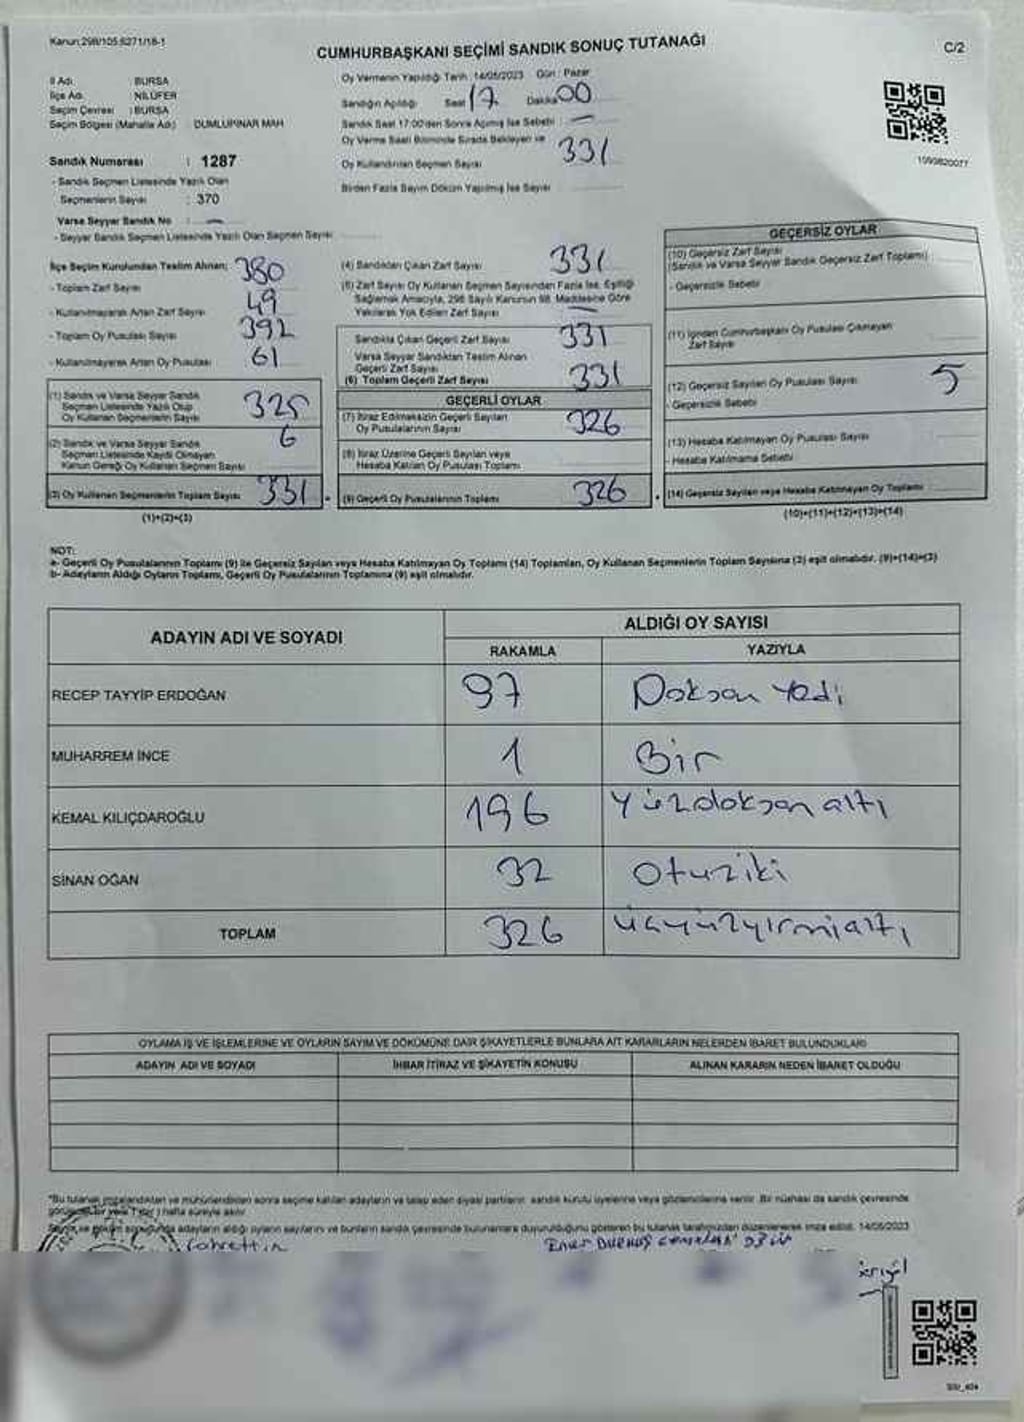 Kanun:298/105.6271/18-1
CUMHURBAŞKANI SEÇİMİ SANDIK SONUÇ TUTANAĞI
C/2
İl Adı : BURSA
İlçe Adı : NİLÜFER
Seçim Çevresi : BURSA
Seçim Bölgesi (Mahalle Adı) : DUMLUPINAR MAH
Sandık Numarası : 1287
- Sandık Seçmen Listesinde Yazılı Olan
Seçmenlerin Sayısı : 370
Varsa Seyyar Sandık No : —
- Seyyar Sandık Seçmen Listesinde Yazılı Olan Seçmen Sayısı
Oy Vermenin Yapıldığı Tarih :14/05/2023 Gün : Pazar
Sandığın Açıldığı Saat 17 Dakika 00
Sandık Saat 17:00'den Sonra Açılmış İse Sebebi : —
Oy Verme Saati Bitiminde Sırada Bekleyen ve
Oy Kullandırılan Seçmen Sayısı 331
Birden Fazla Sayım Döküm Yapılmış İse Sayısı
1090820077
İlçe Seçim Kurulundan Teslim Alınan;
- Toplam Zarf Sayısı 380
- Kullanılmayarak Artan Zarf Sayısı 49
- Toplam Oy Pusulası Sayısı 392
- Kullanılmayarak Artan Oy Pusulası 61
(1) Sandık ve Varsa Seyyar Sandık
Seçmen Listesinde Yazılı Olup
Oy Kullanan Seçmenlerin Sayısı 325
(2) Sandık ve Varsa Seyyar Sandık
Seçmen Listesinde Kaydı Olmayan
Kanun Gereği Oy Kullanan Seçmen Sayısı 6
(3) Oy Kullanan Seçmenlerin Toplam Sayısı 331
(1)+(2)=(3)
(4) Sandıktan Çıkan Zarf Sayısı 331
(5) Zarf Sayısı Oy Kullanan Seçmen Sayısından Fazla İse, Eşitliği
Sağlamak Amacıyla, 298 Sayılı Kanunun 98. Maddesine Göre
Yakılarak Yok Edilen Zarf Sayısı —
Sandıkta Çıkan Geçerli Zarf Sayısı 331
Varsa Seyyar Sandıktan Teslim Alınan
Geçerli Zarf Sayısı
(6) Toplam Geçerli Zarf Sayısı 331
GEÇERLİ OYLAR
(7) İtiraz Edilmeksizin Geçerli Sayılan
Oy Pusulalarının Sayısı 326
(8) İtiraz Üzerine Geçerli Sayılan veya
Hesaba Katılan Oy Pusulası Toplamı
(9) Geçerli Oy Pusulalarının Toplamı 326
GEÇERSİZ OYLAR
(10) Geçersiz Zarf Sayısı
(Sandık ve Varsa Seyyar Sandık Geçersiz Zarf Toplamı)
- Geçersizlik Sebebi
(11) İçinden Cumhurbaşkanı Oy Pusulası Çıkmayan
Zarf Sayısı
(12) Geçersiz Sayılan Oy Pusulası Sayısı 5
- Geçersizlik Sebebi
(13) Hesaba Katılmayan Oy Pusulası Sayısı
- Hesaba Katılmama Sebebi
(14) Geçersiz Sayılan veya Hesaba Katılmayan Oy Toplamı
(10)+(11)+(12)+(13)=(14)
NOT:
a- Geçerli Oy Pusulalarının Toplamı (9) ile Geçersiz Sayılan veya Hesaba Katılmayan Oy Toplamı (14) Toplamları, Oy Kullanan Seçmenlerin Toplam Sayısına (3) eşit olmalıdır. (9)+(14)=(3)
b- Adayların Aldığı Oyların Toplamı, Geçerli Oy Pusulalarının Toplamına (9) eşit olmalıdır.
ADAYIN ADI VE SOYADI
ALDIĞI OY SAYISI
RAKAMLA YAZIYLA
RECEP TAYYİP ERDOĞAN 97 Doksan Yedi
MUHARREM İNCE 1 Bir
KEMAL KILIÇDAROĞLU 196 Yüzdoksan altı
SİNAN OĞAN 32 Otuziki
TOPLAM 326 üçyüzyirmialtı
OYLAMA İŞ VE İŞLEMLERİNE VE OYLARIN SAYIM VE DÖKÜMÜNE DAİR ŞİKAYETLERLE BUNLARA AİT KARARLARIN NELERDEN İBARET BULUNDUKLARI
ADAYIN ADI VE SOYADI İHBAR İTİRAZ VE ŞİKAYETİN KONUSU ALINAN KARARIN NEDEN İBARET OLDUĞU
*Bu tutanak imzalandıktan ve mühürlendikten sonra seçime katılan adayların ve talep eden siyasi partilerin sandık kurulu üyelerine veya gözlemcilerine verilir. Bir nüshası da sandık çevresinde
görülecek bir yere 1 (bir) hafta süreyle asılır.
adayların aldığı oyların sayılarını ve bunların sandık çevresinde bulunanlara duyurulduğunu gösteren bu tutanak tarafımızdan düzenlenerek imza edildi. 14/05/2023